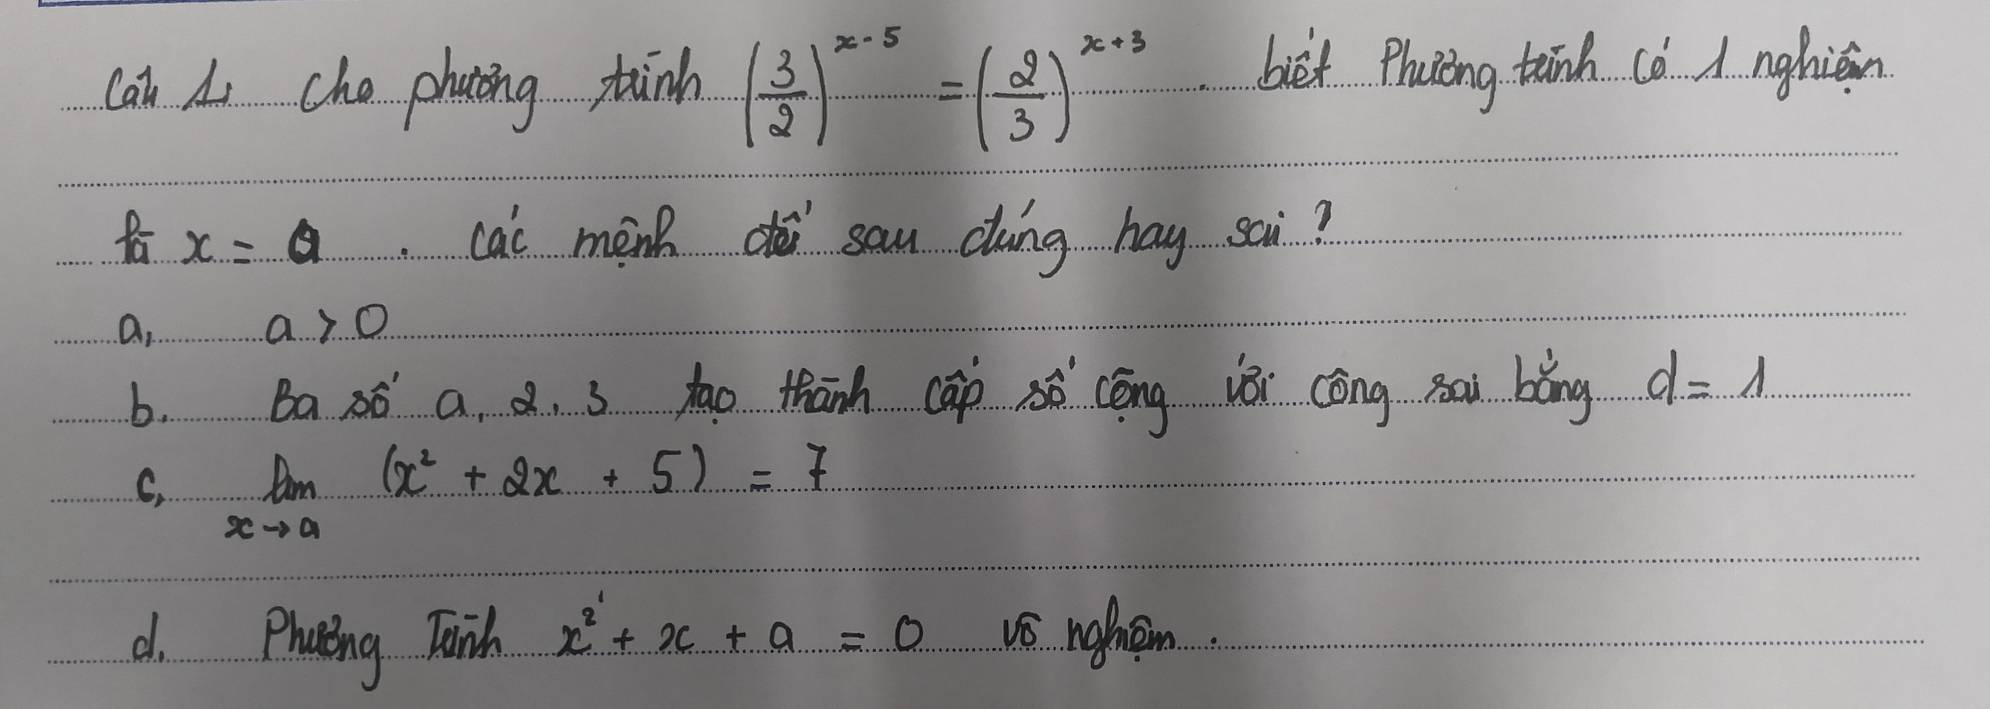 Câu 1, Cho phương trình (3/2)^(x-5) = (2/3)^(x+3). biết Phương trình có 1 nghiệm
là x = a. Các mệnh đề sau đúng hay sai?
a, a > 0
b. Ba số a, 2, 3 tạo thành cấp số cộng với công sai bằng d = 1
c, lim (x² + 2x + 5) = 7
x → a
d. Phương Trình x² + x + a = 0 vô nghiệm.